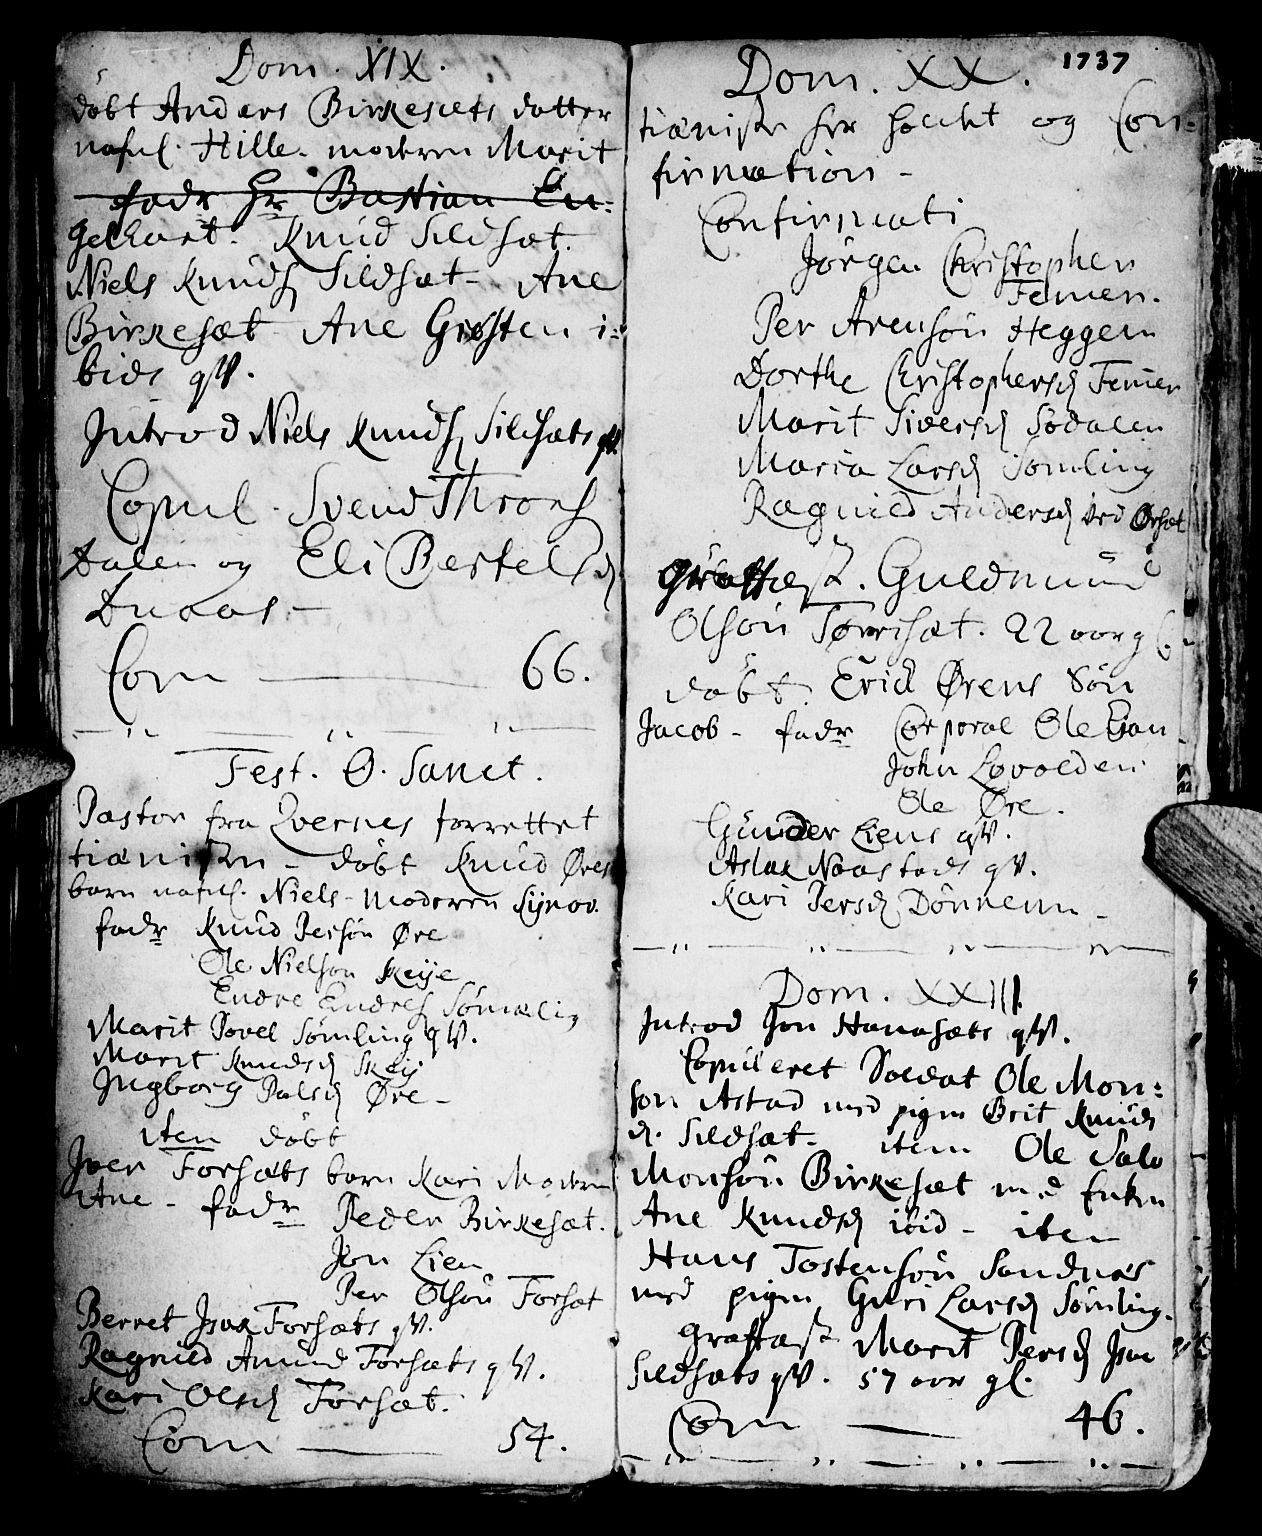 Dom. XIX.
döbt Anders Birkesæts datter
nafnl. Hille. moderen Marit
fadr Hr Bastian En:
gelhart. Knud Sildsæt.
Niels Knuds Sildsæt - Ane
Birkesæt Ane Giösten i:
bids qv.
Introd Niels Knuds Sildsæts qv.
Copul. Svend Throns
dalen og Eli Bertels d
Com 66.
Fest. O. Sanct.
Pastor fra Qvernes forrettet
tienisten - döbt Knud Øres
barn nafnl. Niels - moderen Synov.
fadr Knud Persön Øre
Ole Nielson Skeije
Endre Endres Sömeling
Marit Povel Sömling qv.
Marit Knudsd Skeij
Ingborg Palsd Øre -
iten döbt
Iver Forsæts barn Kari Modern
Ane - fadr Peder Birkesæt.
Jon Lien
Per Olsön Forsæt
Berret Isax Forsæts qv.
Ragnild Amund Forsæts qv.
Kari Olsd Forsæt.
Com 54.
1737
Dom. XX.
tienisten for holdt og Con-
firmation -
Confirmati
Jörgen Christophen
Femen.
Per Arensön Heggem
Dorthe Christophersd Femen
Marit Siversd Södalen
Maria Larsd Sömling
Ragnild Andersd ved Ørsæt
Graffæst. Guldmund
Olsön Törrisæt. 22 aar g
döbt. Erick Ørens Sön
Jacob - fadr Corporal Ole Gan
John Lovolden
Ole Øre.
Gunder Liens qv.
Aslak Naastads qv.
Kari Persd Dönnem -
Dom. XXIII.
Introd Jon Hanasæts qv.
Copuleret Soldat Ole Mon:
son Astad med pigen Brit Knuds
d. Sildsæt. item Ole Salo
Monsön Birkesæt med Enken
Ane Knudsd ibid - iten
Hans Tostensön Sandnæs
med pigen Guri Larsd Sömling.
Graffæst Marit Persd Isac
Sildsæts qv. 57 aar gl.
Com 46.